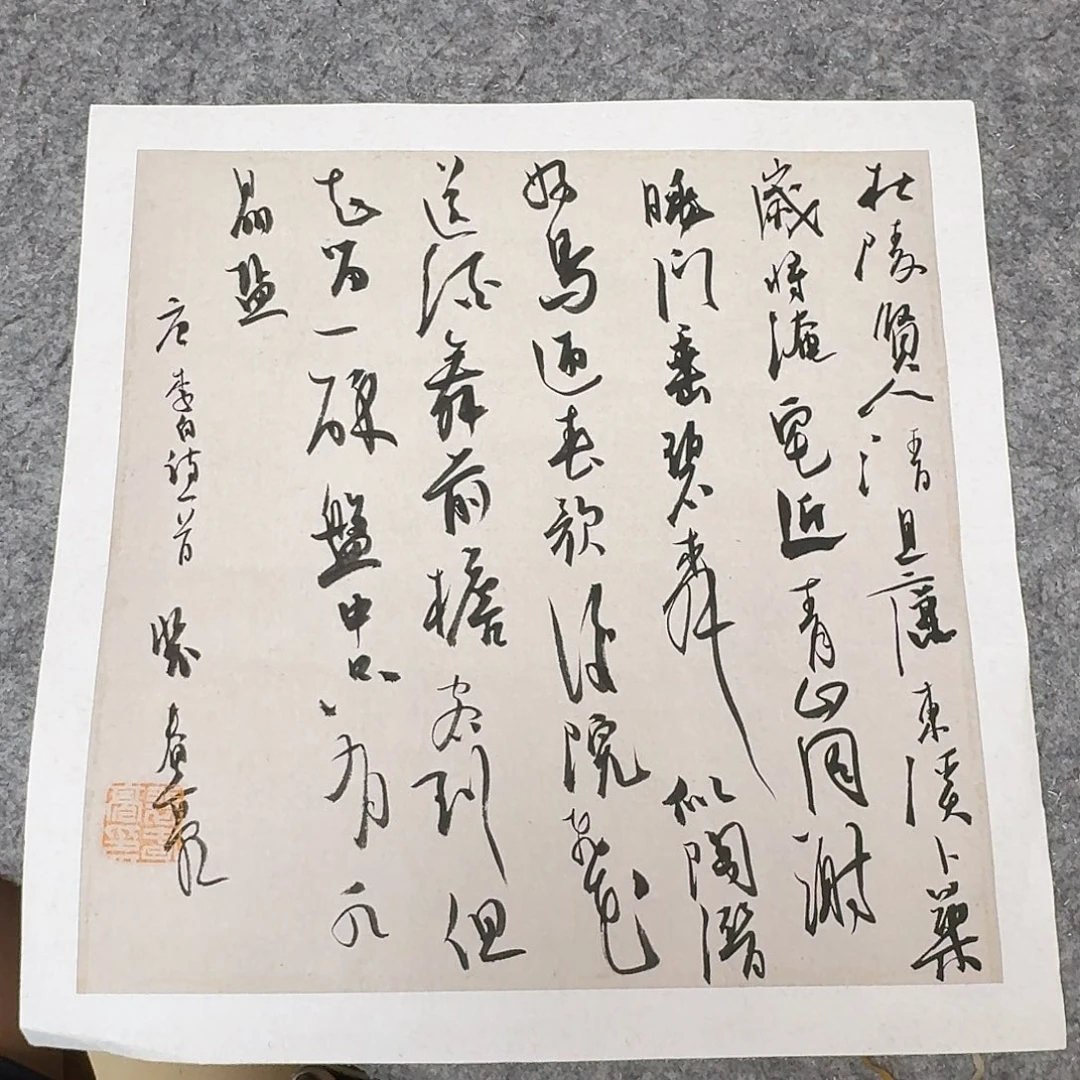 杜陵賢人清且廉東溪卜築
歲將淹宅近青山同謝
朓門垂碧柳似陶潛
好鳥迎春歌後院飛花
送酒舞前檐客到但
知留一醉盤中只有水
晶鹽
唐李白詩一首